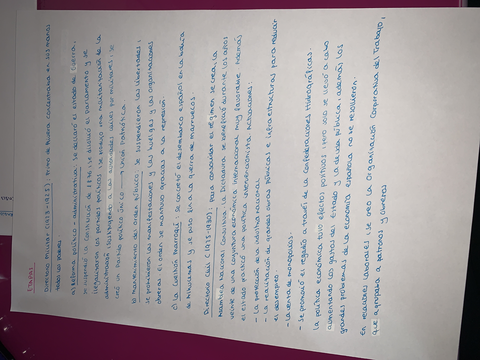 ETAPAS
DIRECTORIO MILITAR (1923-1925): Primo de Rivera concentraba en sus manos
todo los poder
a) Régimen político-administrativo: se declaró el estado de guerra,
se suspendió la constitución de 1876, se disolvió el parlamento y se
los partidos políticos, se una militarización de la
administración sustituyendo a las autoridades civiles por militares, se
creó un partido político único → Unión Patriótica
b) Mantenimiento del orden público: se suspendieron las libertades,
se prohibieron las manifestaciones y las huelgas y las organizaciones
obreras. El orden se mantuvo gracias a la represión.
c) La cuestión marroquí: se concretó el desembarco español en la bahía
de Alhucemas y se puso fin a la guerra de marruecos.
DIRECTORIO CIVIL (1925-1930): para consolidar el régimen se crea la
Asamblea Nacional Consultiva. La Dictadura se benefició durante los años
veinte de una coyuntura económica internacional muy favorable. Además
el estado practicó una política intervencionista. Actuaciones:
- La protección de la industria nacional
- La realización de grandes obras públicas e infraestructuras para reducir
el desempleo
- La venta de monopolios.
- Se promovió el regadío a través de la confederaciones hidrográficas.
La política económica tuvo efectos positivos, pero solo se llevó a cabo
aumentando los gastos del estado y la deuda pública, además los
grandes problemas de la economía española no se resolvieron.
En relaciones laborales, se creó la Organización Corporativa del Trabajo,
que agrupaba a patronos y obreros